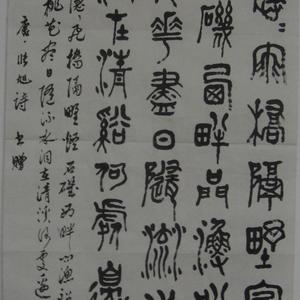 飛橋隔野
磯西畔問漁
花盡日隨流水
在清谿何處邊
隱飛橋隔野煙石磯西畔問漁船
花盡日隨流水洞在清溪何處邊
唐·張旭詩 書贈